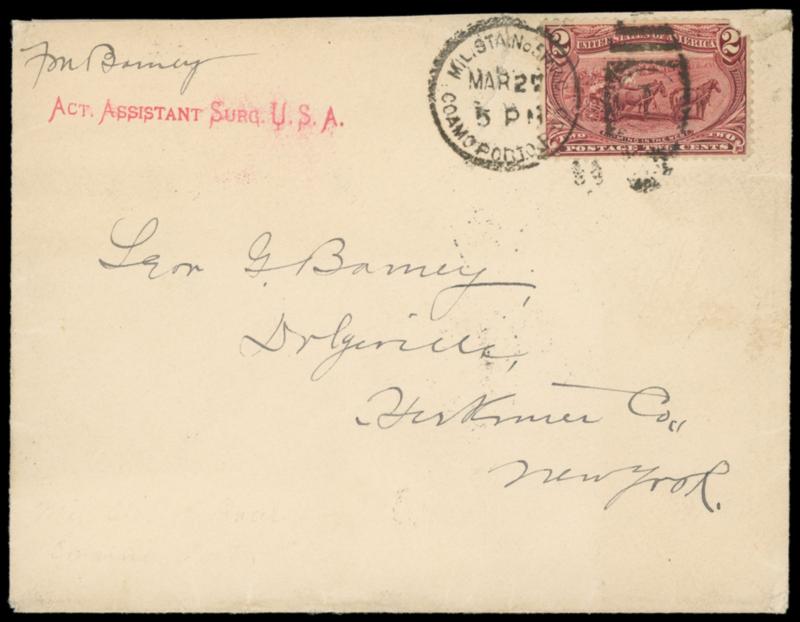 Barney
ACT. ASSISTANT SURG. U. S. A.
MIL. STA. No. 5
MAR 27
5 PM
COAMO PORTO
2 UNITED STATES OF AMERICA 2
TWO
POSTAGE TWO CENTS
Leon G. Barney,
Dolgeville,
Herkimer Co.,
New York.